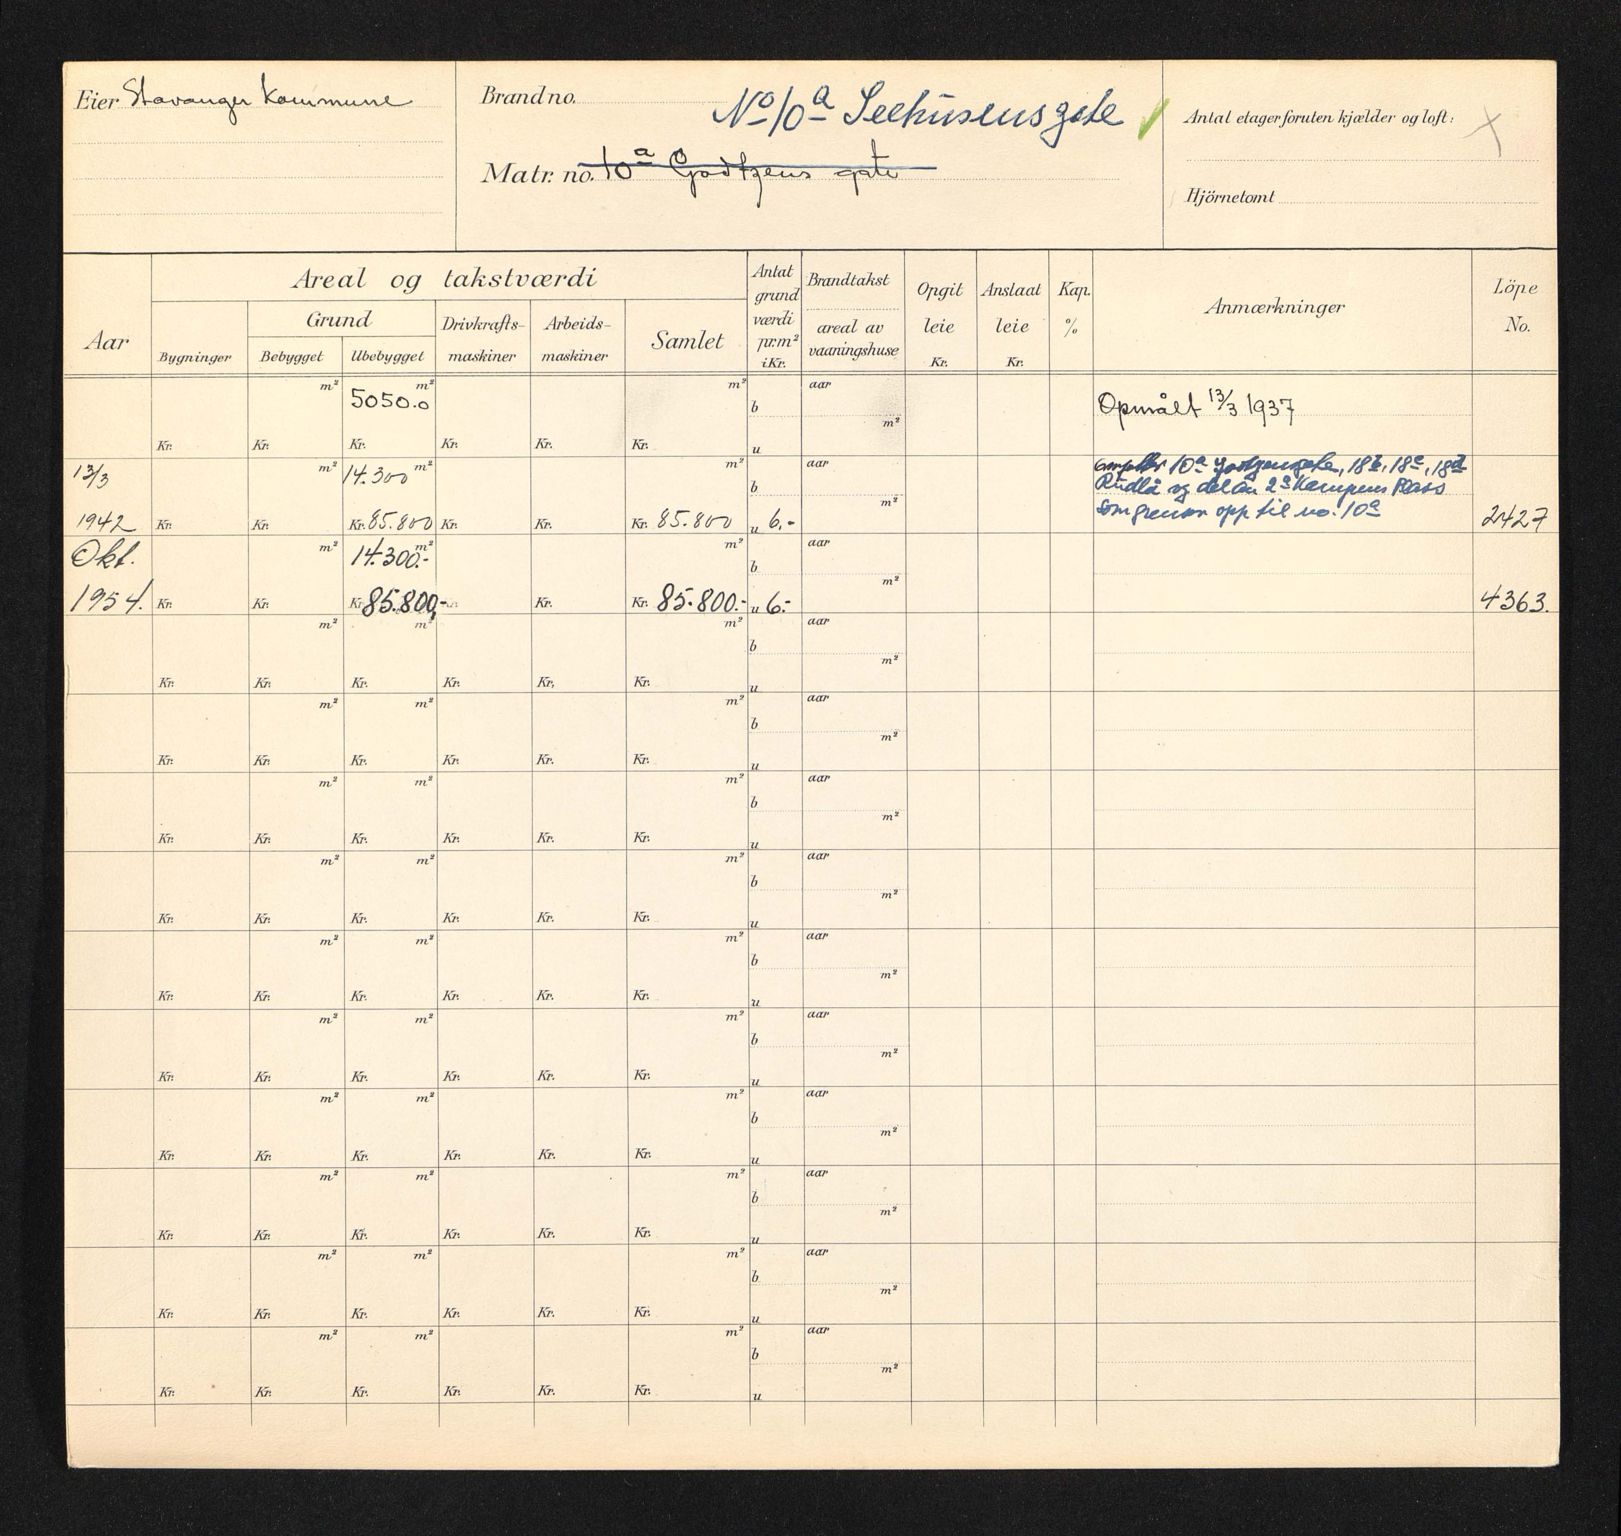 Eier Stavanger Kommune
Brand no.
No 10a Seehusensgate
Matr. no. 10a Godtzens gate
Antal etager foruten kjælder og loft: X
Hjörnetomt
Aar
Areal og takstværdi
Bygninger
Grund
Bebygget
Ubebygget
Drivkrafts-
maskiner
Arbeids-
maskiner
Samlet
Antat
grund
værdi
pr. m²
i Kr.
Brandtakst
areal av
vaaningshuse
Opgit
leie
Kr.
Anslaat
leie
Kr.
Kap.
%
Anmærkninger
Löpe
No.
m² 5050.0 m² m² b aar m² Opmålt 13/3 1937
Kr. Kr. Kr. Kr. Kr. Kr. u
13/3 m² 14.300 m² m² b aar m² 10a Godtzensgate, 18b, 18c, 18d
Rudlå og del av 2a Kampens Plass
som grenser opp til no. 10a
1942 Kr. Kr. Kr. 85.800 Kr. Kr. Kr. 85.800 u 6,- 2427
Okt. m² 14.300.- m² m² b aar m²
1954. Kr. Kr. Kr. 85.800,- Kr. Kr. 85.800.- u 6.- 4363.
m² m² m² b aar m²
Kr. Kr. Kr. Kr. Kr. Kr. u
m² m² m² b aar m²
Kr. Kr. Kr. Kr. Kr. Kr. u
m² m² m² b aar m²
Kr. Kr. Kr. Kr. Kr. Kr. u
m² m² m² b aar m²
Kr. Kr. Kr. Kr. Kr. Kr. u
m² m² m² b aar m²
Kr. Kr. Kr. Kr. Kr. Kr. u
m² m² m² b aar m²
Kr. Kr. Kr. Kr. Kr. Kr. u
m² m² m² b aar m²
Kr. Kr. Kr. Kr. Kr. Kr. u
m² m² m² b aar m²
Kr. Kr. Kr. Kr. Kr. Kr. u
m² m² m² b aar m²
Kr. Kr. Kr. Kr. Kr. Kr. u
m² m² m² b aar m²
Kr. Kr. Kr. Kr. Kr. Kr. u